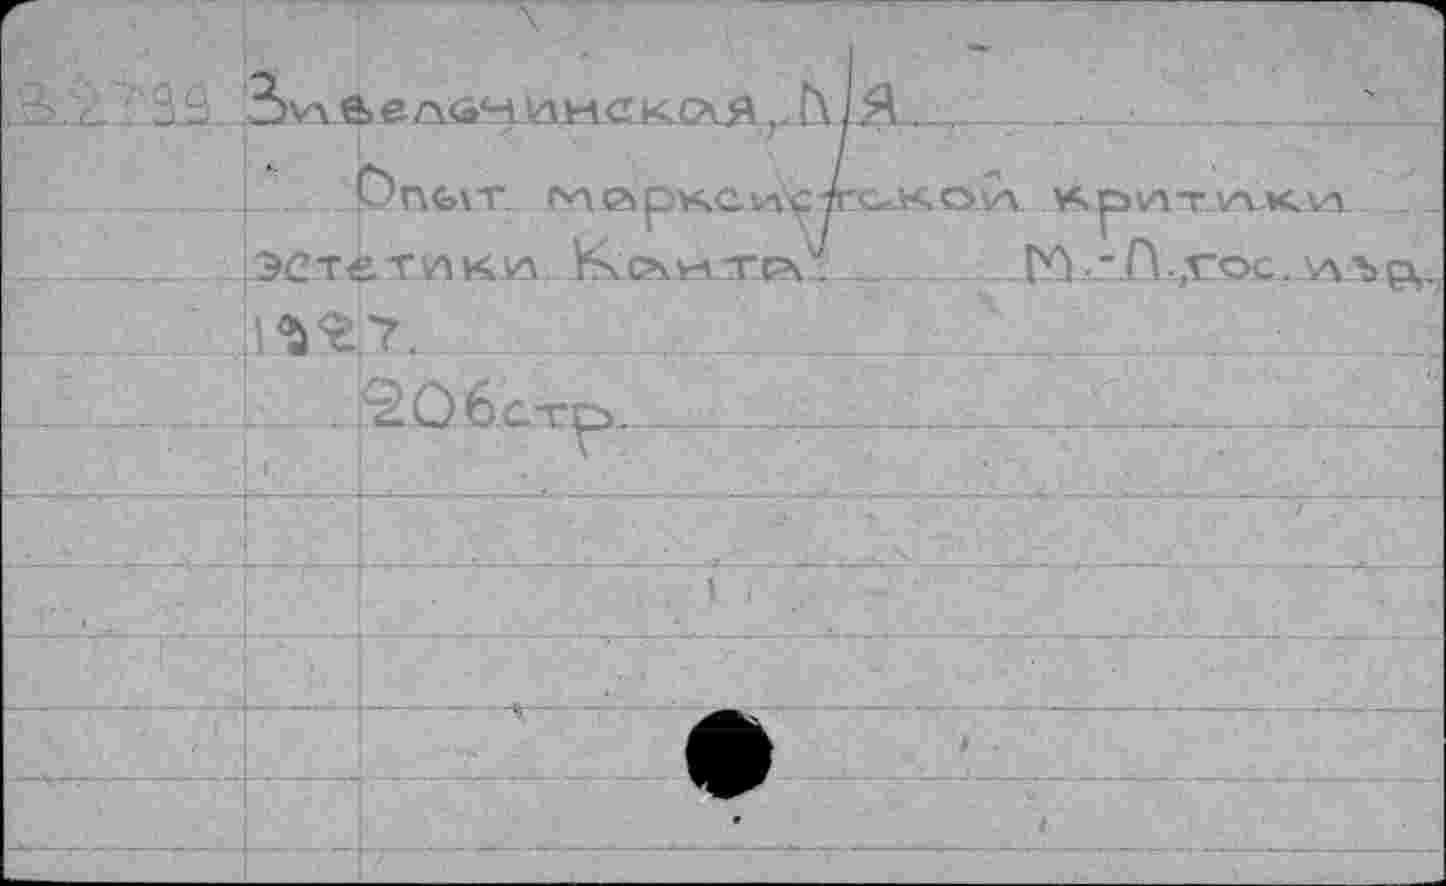 В.2799 Зивельчинская, Л Я.
Опыт марксистской критики
эстетики Канта. М.-Л.,гос. изд.,
1927.
206стр.